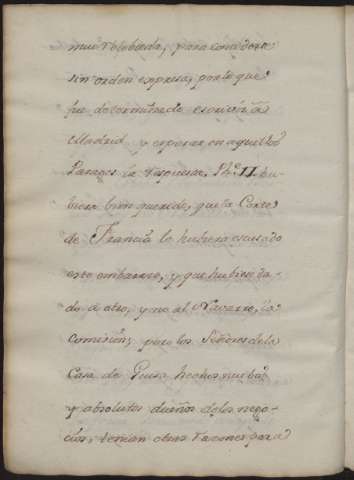 mui vidada, para considera
sin orden expresa, por lo que
fue determinado escrivir â
Madrid y esperar en aquellos
Parages la respuesta. Ph.e II. hu-
biera bien querido, que la Corte
de Francia le hubiera escusado
este embarazo, y que hubiese da-
do â otro, y no al Navarro, la
comision; pero los Señores de la
Casa de Guisa hechos nuebos
y absolutos dueños de los nego-
cios, tenian otras razones para